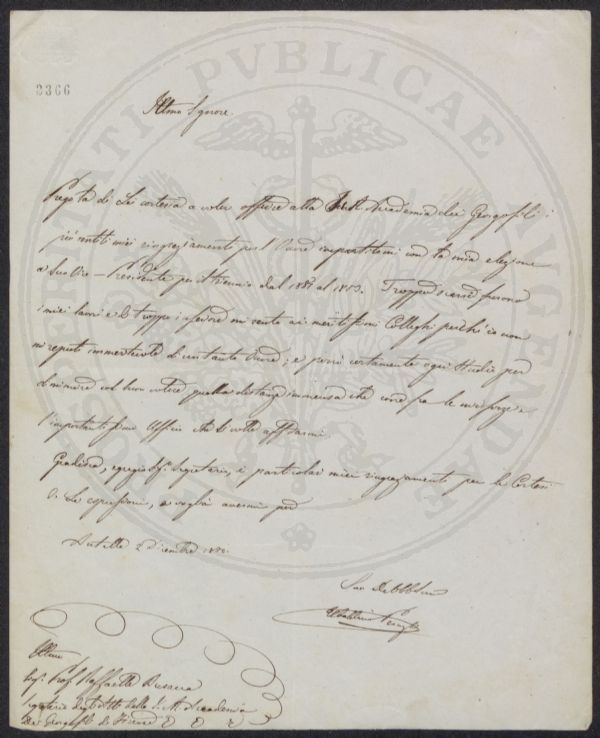 3366
Illmo Signore.
Prego la di Lei cortesia a voler offrire alla I. e R. Accademia dei Georgofili i
più sentiti miei ringraziamenti per l'Onore impartitomi con la mia elezione
a Suo Vice-Presidente per il triennio dal 1857 al 1859. Troppo scarsi furono
i miei lavori e troppo inferiore mi sento ai meritissimi Colleghi perchè io non
mi reputi immeritevole di un tanto Onore; e porrò certamente ogni studio per
diminuire col buon volere quella distanza immensa che corre fra le mie forze e
l'importantissimo Officio che le volle affidarmi
Gradisca, egregio Sigr. Segretario, i particolari miei ringraziamenti per le Cortesi
di Lei espressioni, e voglia avermi per
2 Dicembre
Suo
Illmo
Sigr. Prof. Raffaelle Busacca
Segretario degli Atti della I. e R. Accademia
dei Georgofili di Firenze
PVBLICAE
AVGENDAE